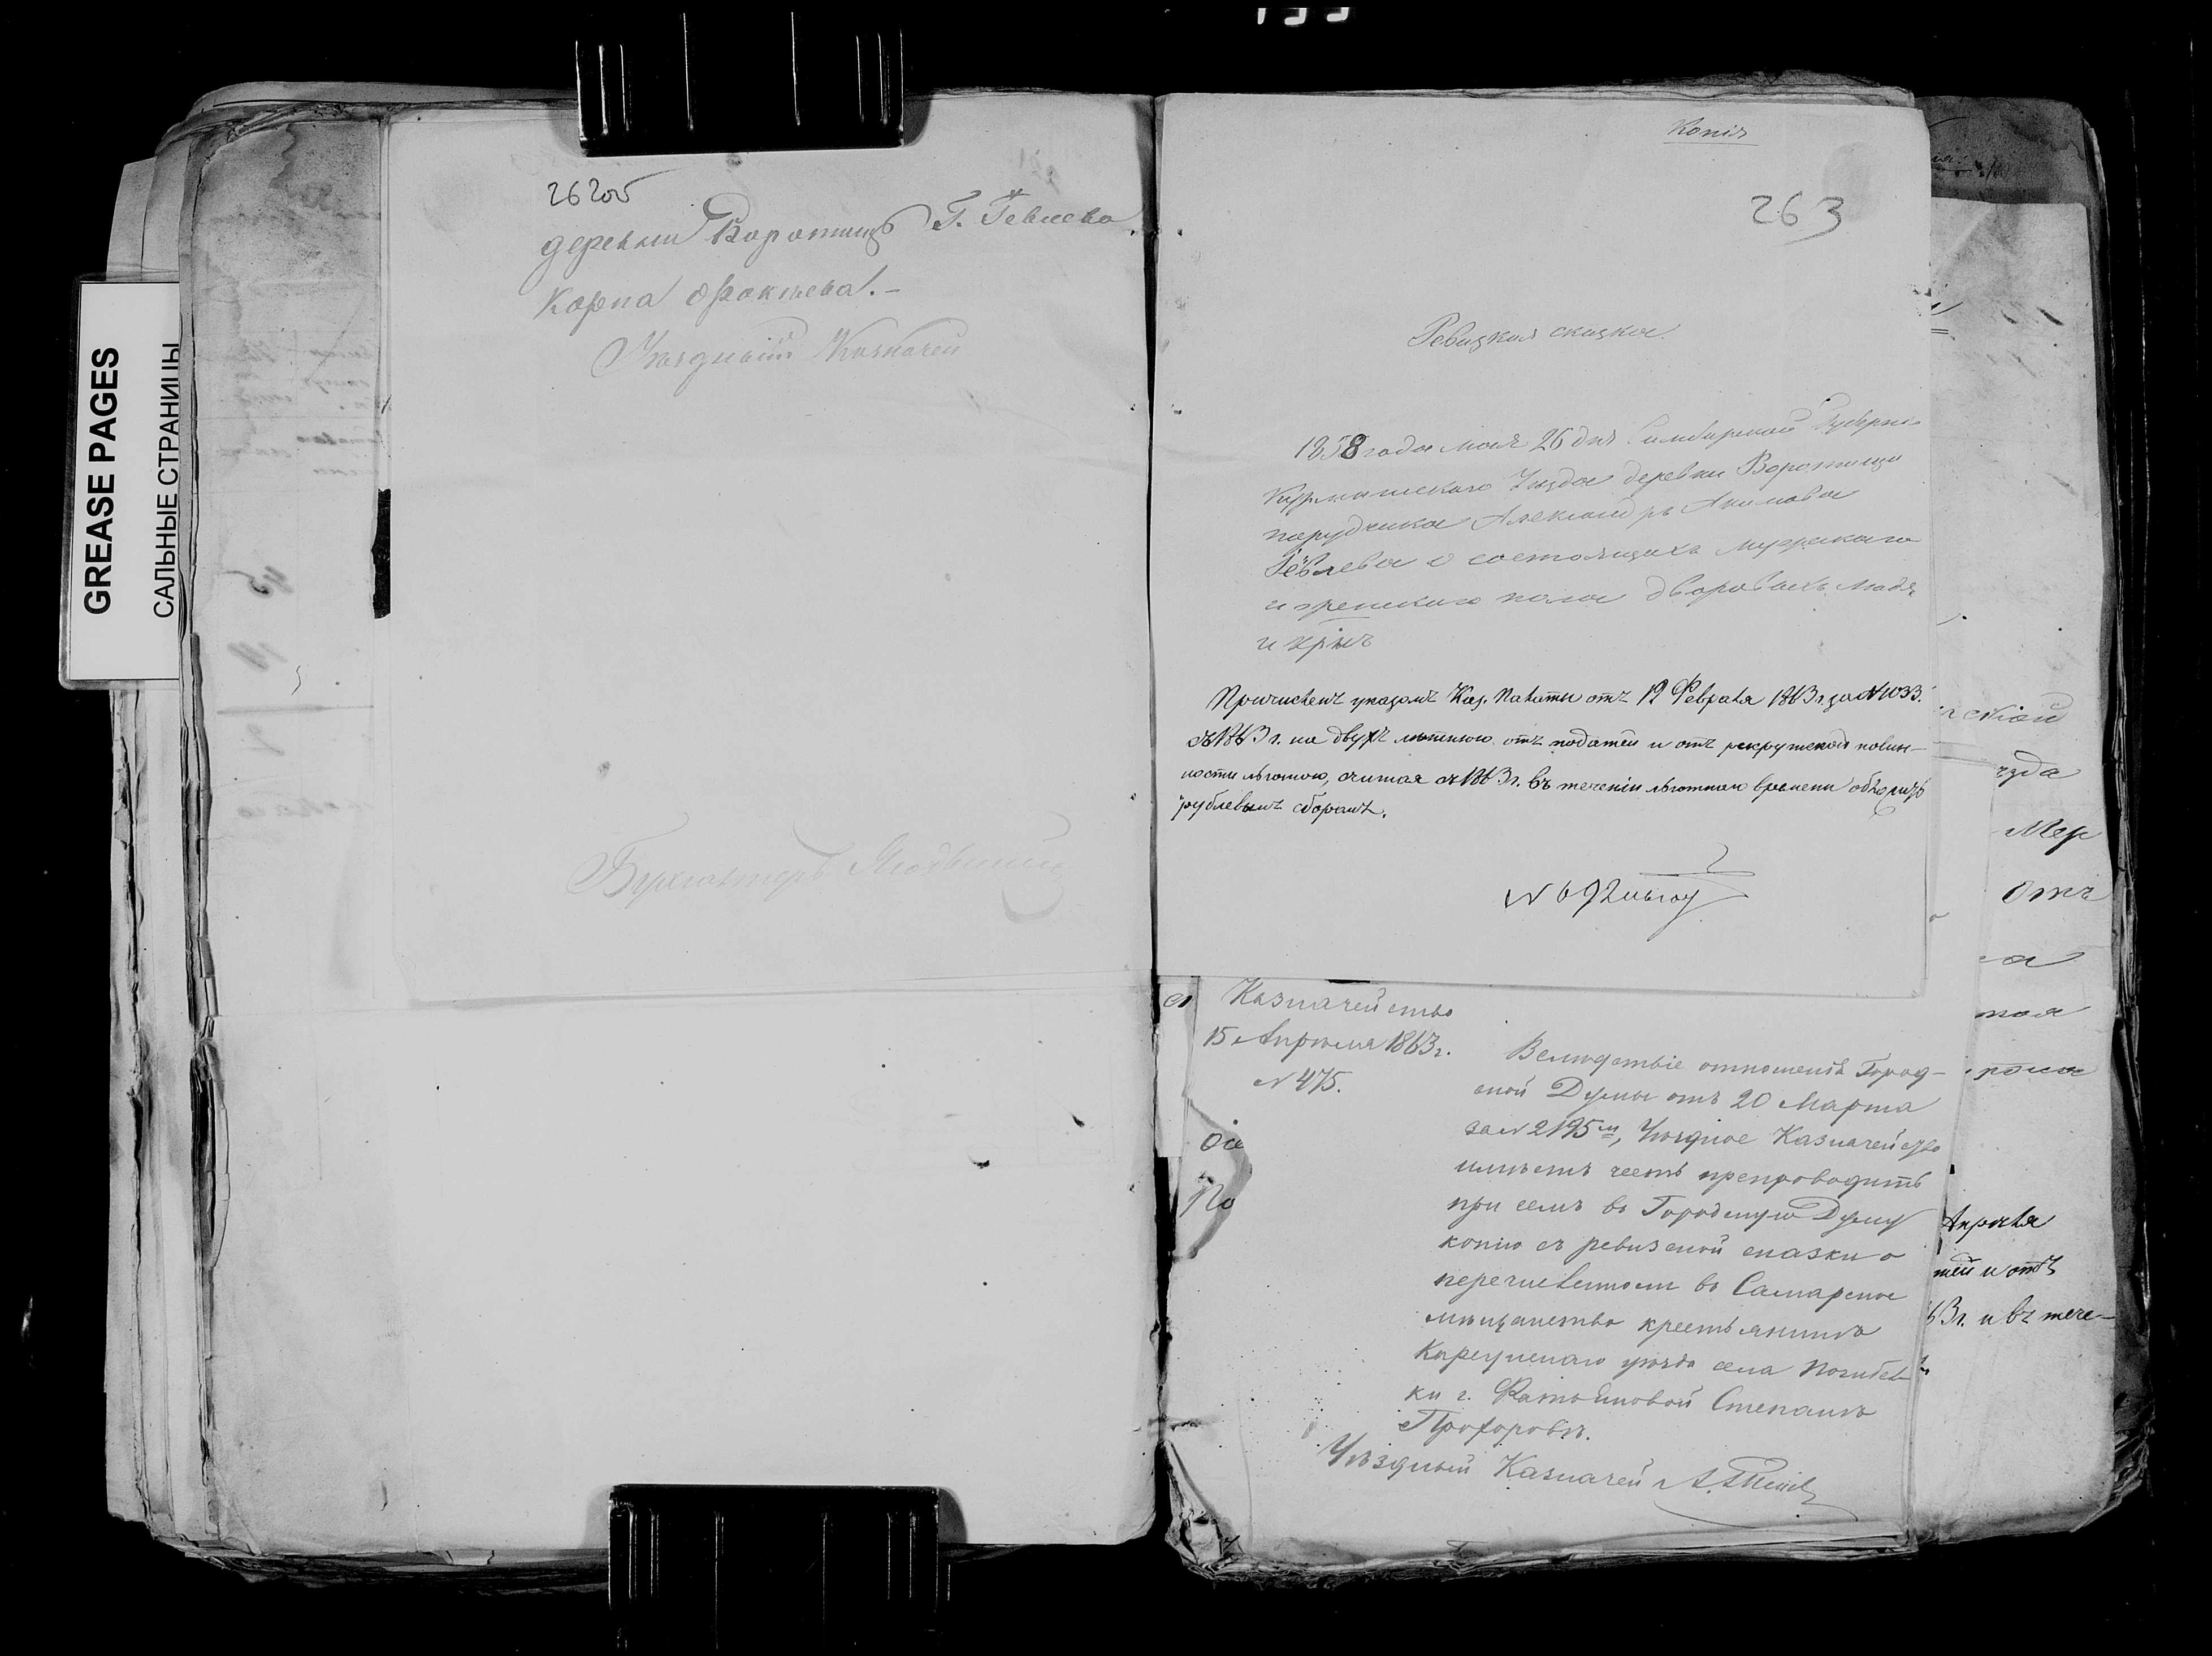 GREASE PAGES
САЛЬНЫЕ СТРАНИЦЫ
262об
деревни Воротищъ Г. Гевлева
Карпа Фокѣева.-
Уѣздный Казначей
Бухгалтеръ
Копія
263
Ревизкая сказка.
1858 года мая 26 дня Симбирской Губерніи
Курмышскаго Уѣзда деревни Воротищи
порудчика Александръ Акимова
Гёвлева о состоящихъ мужскаго
и женскаго пола дворовыхъ людя
и кр҃нъ
Причисленъ указомъ Каз. Палаты отъ 12 Февраля 1863 г. за №1033.
съ 1863 г. на двухъ лѣтнюю отъ податей и отъ рекрутской повин-
ности льготою, считая съ 1863 г. въ теченіи льготнаго времени
рублевымъ сборамъ.
№ 69
Казначейство
15 Апрѣля 1863 г.
№ 475.
Вслѣдствіе отношенія Город-
ской Думы отъ 20 Марта
за № 2195м, Уѣздное Казначейство
имѣетъ честь препроводить
при семъ въ Городскую Думу
копію съ ревизской сказки о
перечисленномъ въ Самарское
мѣщанство крестьянинѣ
Карсунскаго уѣзда села Погибел-
ки г. Степанѣ
Прохоровѣ.
Уѣздный Казначей
Ое
По
уѣзда
Мер
Отъ
Апрѣля
тей и отъ
63 г. и въ тече-